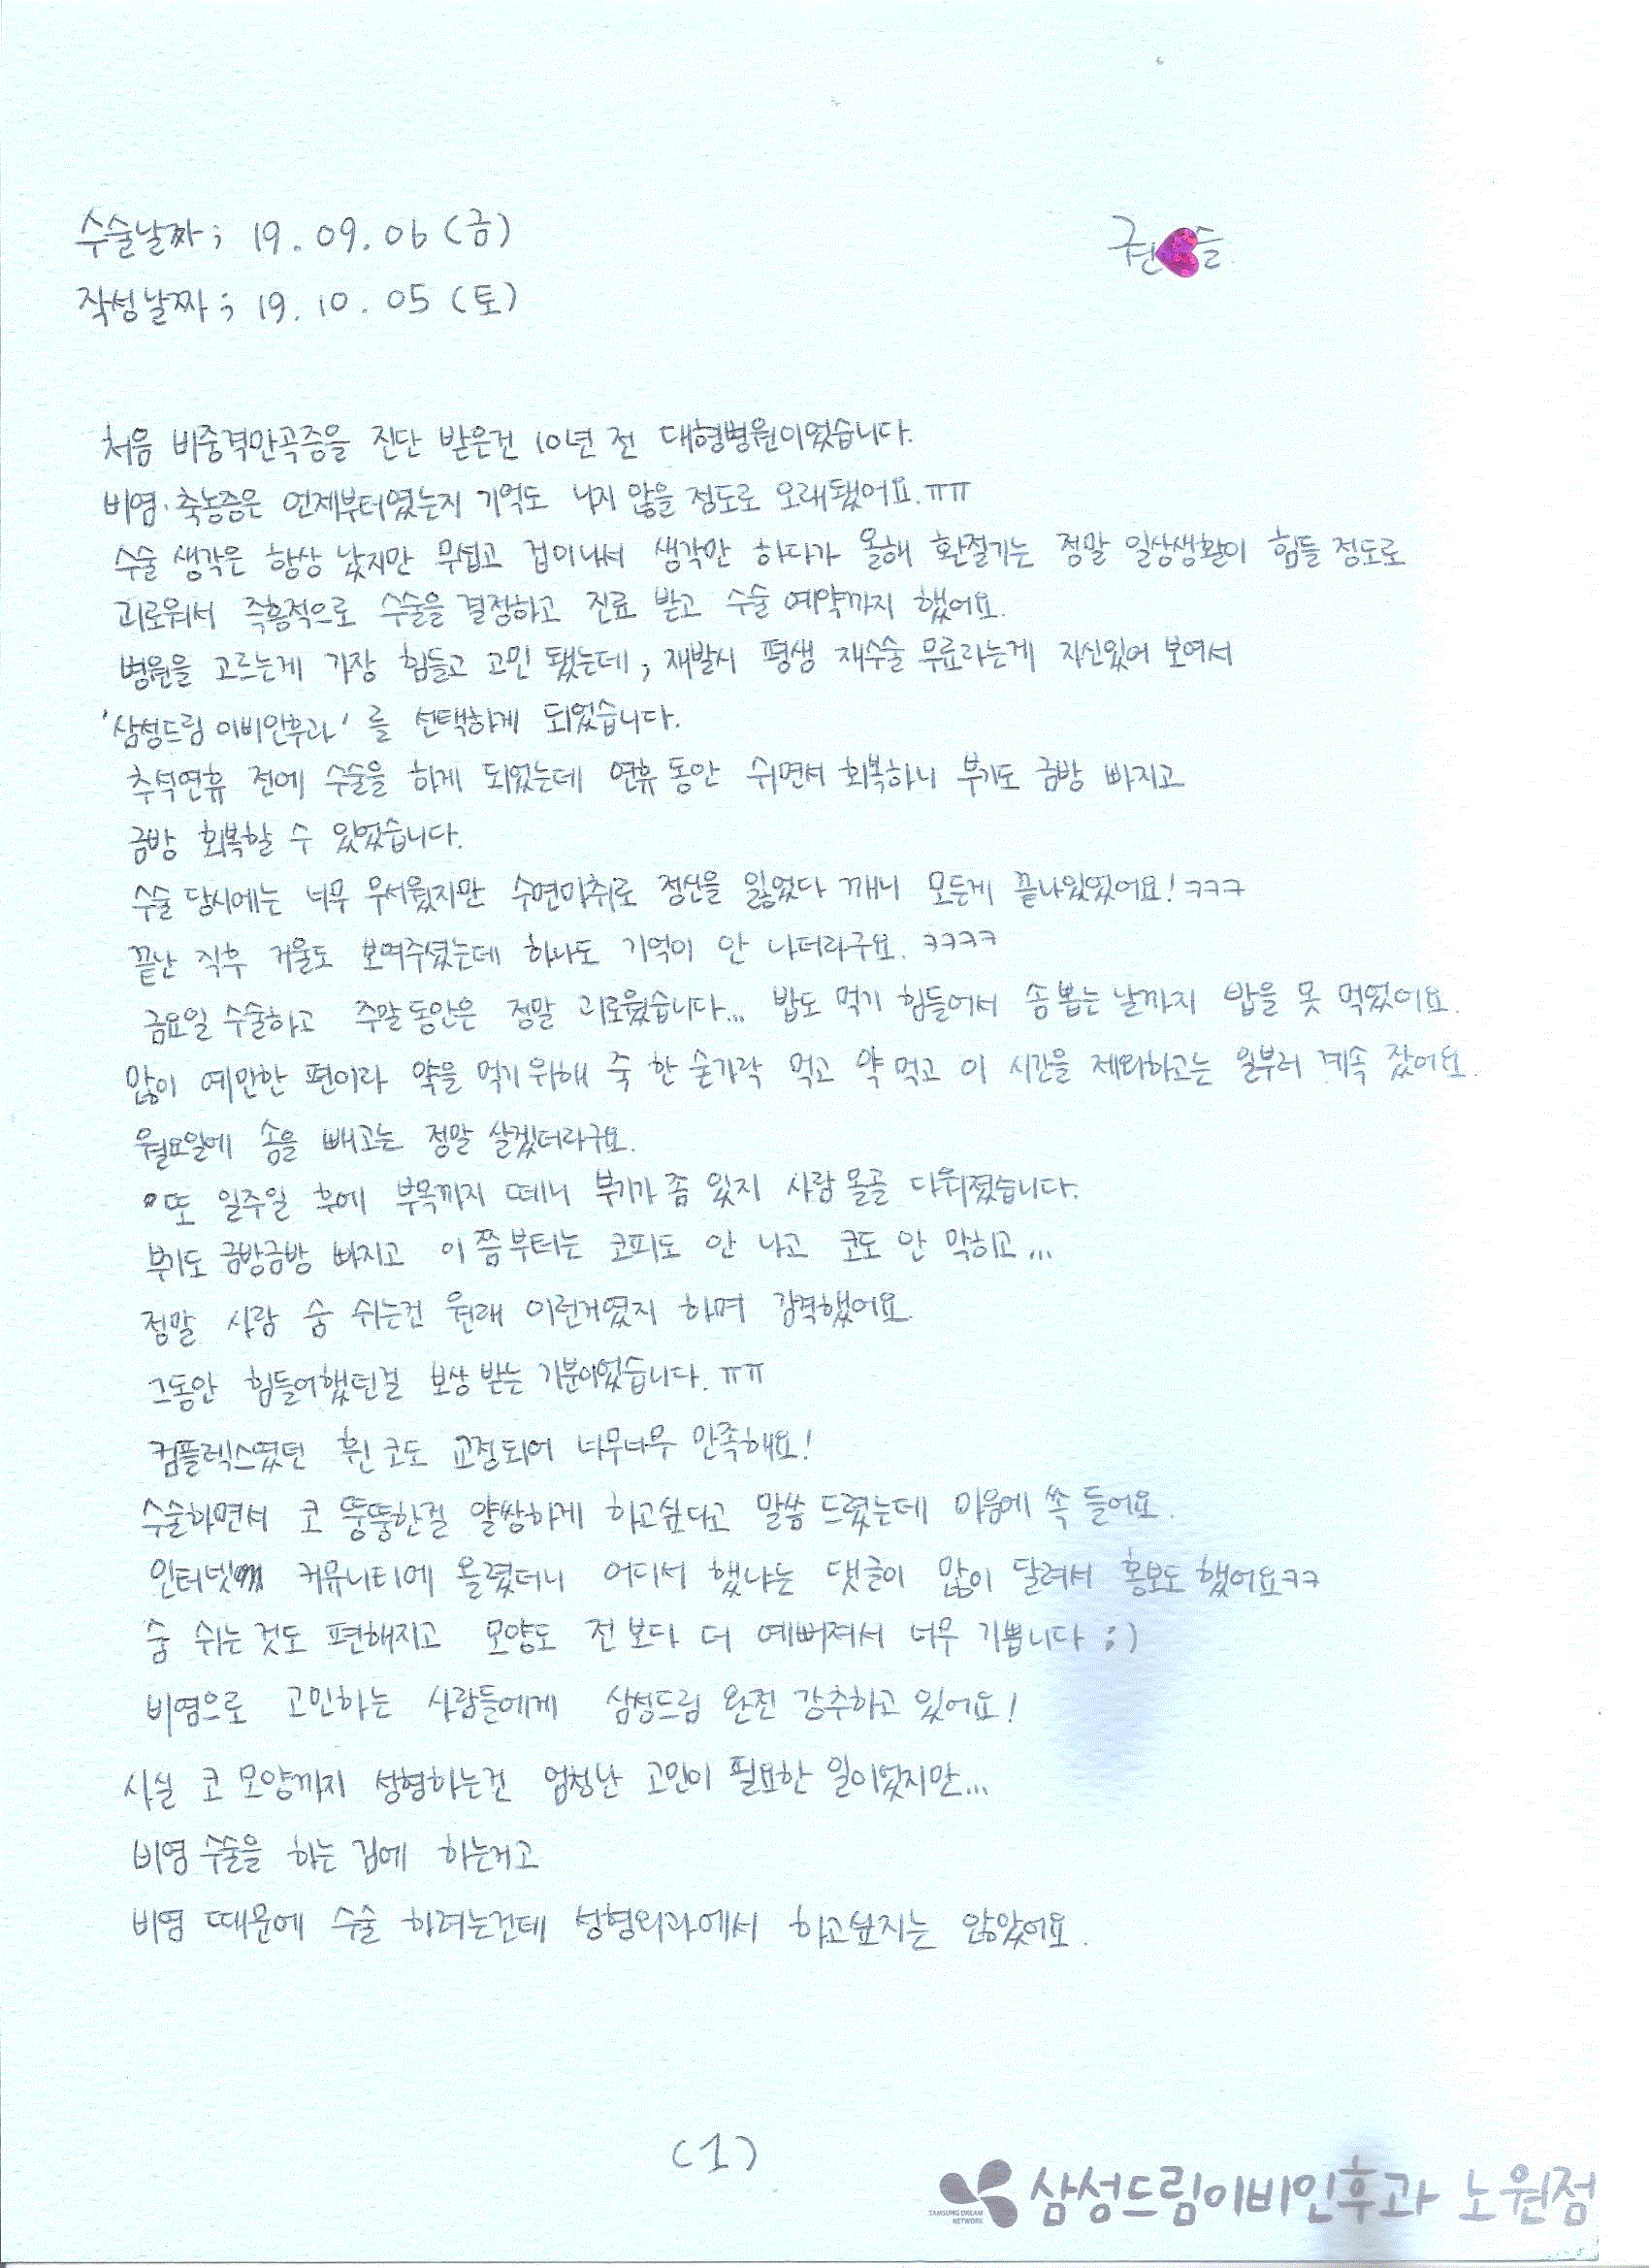 수술날짜; 19. 09. 06 (금)
권 슬
작성날짜; 19. 10. 05 (토)
처음 비중격만곡증을 진단 받은건 10년 전 대형병원이었습니다.
비염·축농증은 언제부터였는지 기억도 나지 않을 정도로 오래됐어요.ㅠㅠ
수술 생각은 항상 났지만 무섭고 겁이나서 생각만 하다가 올해 환절기는 정말 일상생활이 힘들 정도로
괴로워서 즉흥적으로 수술을 결정하고 진료 받고 수술 예약까지 했어요.
병원을 고르는게 가장 힘들고 고민 됐는데, 재발시 평생 재수술 무료라는게 자신있어 보여서
'삼성드림 이비인후과' 를 선택하게 되었습니다.
추석연휴 전에 수술을 하게 되었는데 연휴 동안 쉬면서 회복하니 붓기도 금방 빠지고
금방 회복할 수 있었습니다.
수술 당시에는 너무 무서웠지만 수면마취로 정신을 잃었다 깨니 모든게 끝나있었어요! ㅋㅋㅋ
끝난 직후 거울도 보여주셨는데 하나도 기억이 안 나더라구요. ㅋㅋㅋㅋ
금요일 수술하고 주말 동안은 정말 괴로웠습니다... 밥도 먹기 힘들어서 솜 뽑는 날까지 밥을 못 먹었어요.
많이 예민한 편이라 약을 먹기 위해 죽 한 숟가락 먹고 약 먹고 이 시간을 제외하고는 일부러 계속 잤어요.
월요일에 솜을 빼고는 정말 살겠더라구요.
또 일주일 후에 부목까지 떼니 붓기가 좀 있지 사람 몰골 다워졌습니다.
붓기도 금방금방 빠지고 이 쯤부터는 코피도 안 나고 코도 안 막히고...
정말 사람 숨 쉬는건 원래 이런거였지 하며 감격했어요.
그동안 힘들어했던걸 보상 받는 기분이었습니다. ㅠㅠ
컴플렉스였던 휜 코도 교정되어 너무너무 만족해요!
수술하면서 코 뚱뚱한걸 얄쌍하게 하고싶다고 말씀 드렸는데 마음에 쏙 들어요.
인터넷 커뮤니티에 올렸더니 어디서 했냐는 댓글이 많이 달려서 홍보도 했어요ㅋㅋ
숨 쉬는 것도 편해지고 모양도 전 보다 더 예뻐져서 너무 기쁩니다 ;)
비염으로 고민하는 사람들에게 삼성드림 완전 강추하고 있어요!
사실 코 모양까지 성형하는건 엄청난 고민이 필요한 일이었지만...
비염 수술을 하는 김에 하는거고
비염 때문에 수술 하려는건데 성형외과에서 하고싶지는 않았어요.
(1)
삼성드림이비인후과 노원점
SAMSUNG DREAM
NETWORK